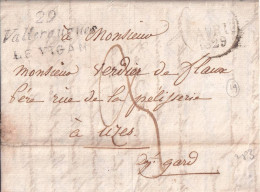 29
Valleraugues
LE VIGAN
à Monsieur
monsieur verdier de flaux
rue de la pelisserie
à uzès
gard
1829